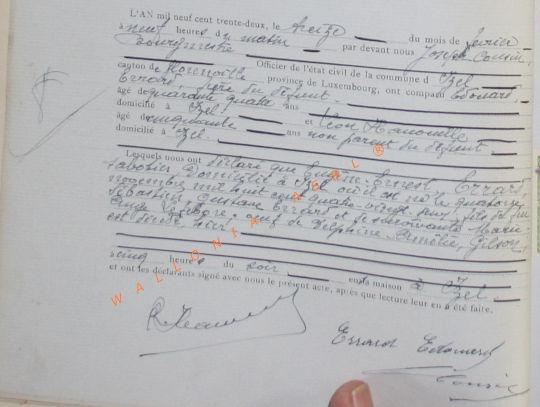 L'AN mil neuf cent trente-deux, le treize du mois de février
à neuf heures du matin par devant nous Joseph
Bourgmestre
Officier de l'état civil de la commune d'Izel
canton de Florenville province de Luxembourg, ont comparu Edouard
Errard, du défunt
âgé de quarante quatre ans
domicilié à Izel et Léon
âgé de cinquante ans non parent du défunt
domicilié à Izel.
Lesquels nous ont déclaré que Eugène Ernest Errard
sabotier domicilié à Izel où il est né le quatorze
novembre mil huit cent quatre-vingt fils de feu
Sébastien Gustave Errard et de Marie
veuf de Delphine Amélie Gilson
est décédé hier
à cinq heures du soir en sa maison à Izel.
et ont les déclarants signé avec nous le présent acte, après que lecture leur en a été faite.
Errard Edouard
WALLONIA ASBL ®